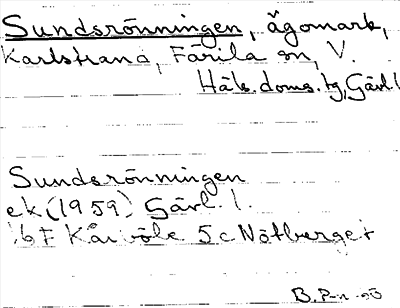 Sundsrönningen, ägomark,
Karlstrand, Färila sn, V.
Häls. doms. tg, Gävl. l
Sundsrönningen
ek (1959) Gävl. l.
16F Kårböle 5c Nötberget